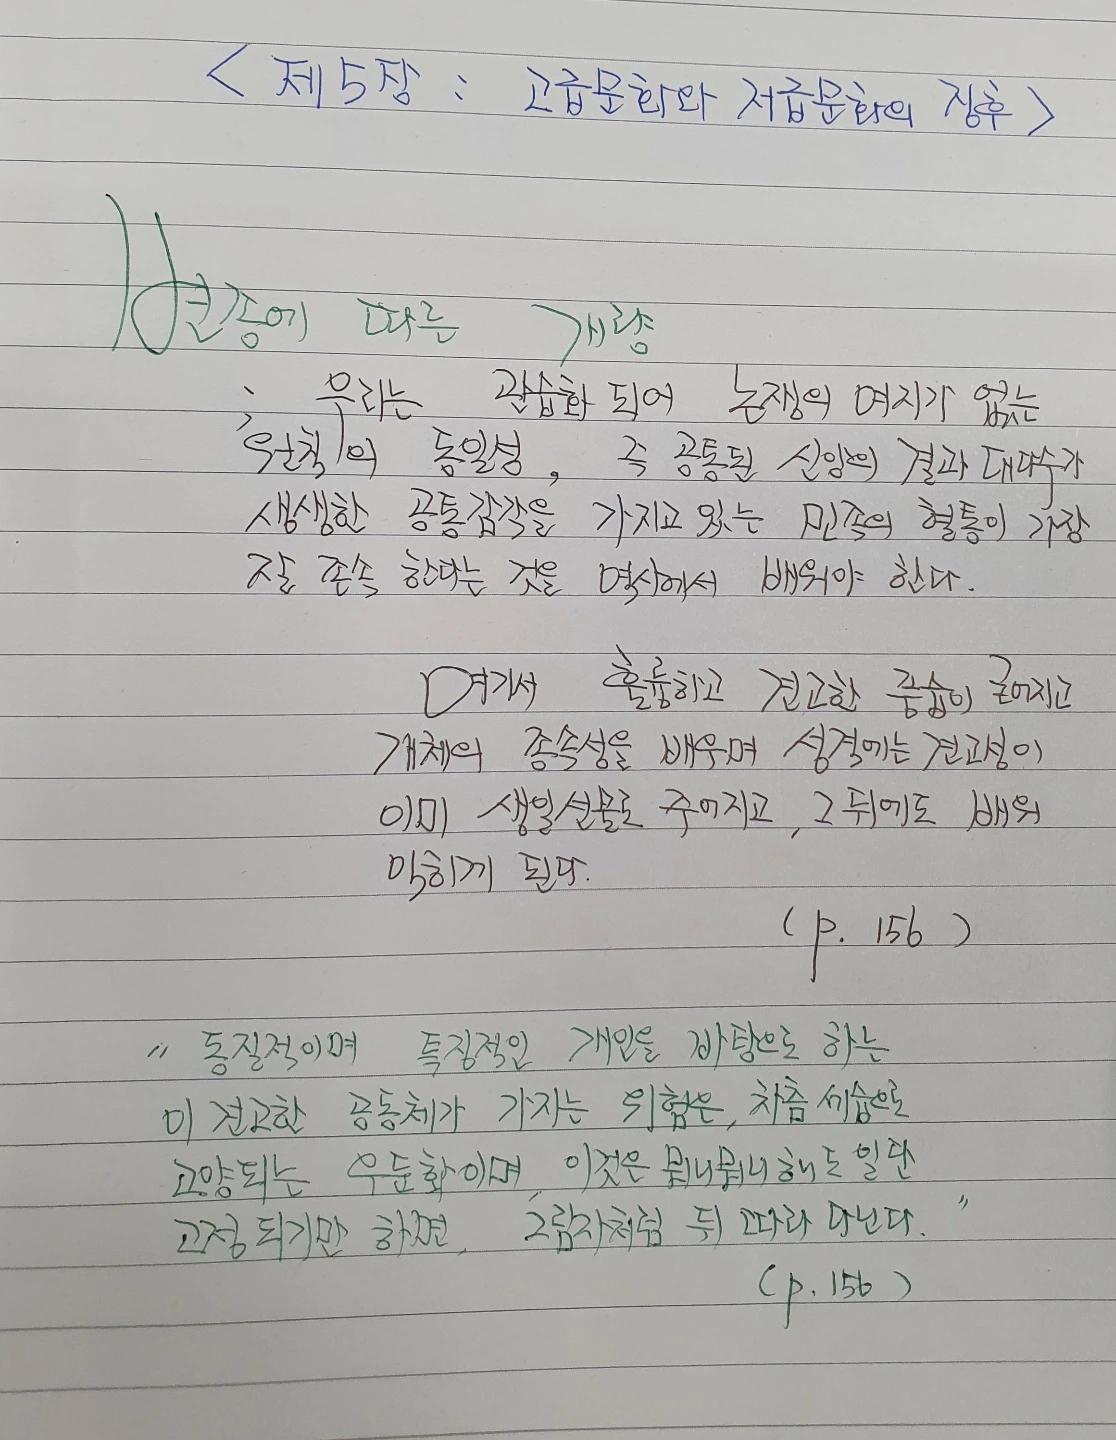 < 제5장 : 고급문화와 저급문화의 징후 >
변종에 따른 개량
; 우리는 관습화 되어 논쟁의 여지가 없는
원칙의 동일성, 즉 공통된 신앙의 결과 대다수가
생생한 공통감각을 가지고 있는 민족의 혈통이 가장
잘 존속 한다는 것을 역사에서 배워야 한다.
여기서 훌륭하고 견고한 풍습이 굳어지고
개체의 종속성을 배우며 성격에는 견고성이
이미 생일선물로 주어지고, 그 뒤에도 배워
익히게 된다.
(p. 156)
" 동질적이며 특징적인 개인을 바탕으로 하는
이 견고한 공동체가 가지는 위험은, 차츰 세습으로
고양되는 우둔화이며, 이것은 뭐니뭐니해도 일단
고정 되기만 하면, 그림자처럼 뒤 따라 다닌다. "
(p. 156)